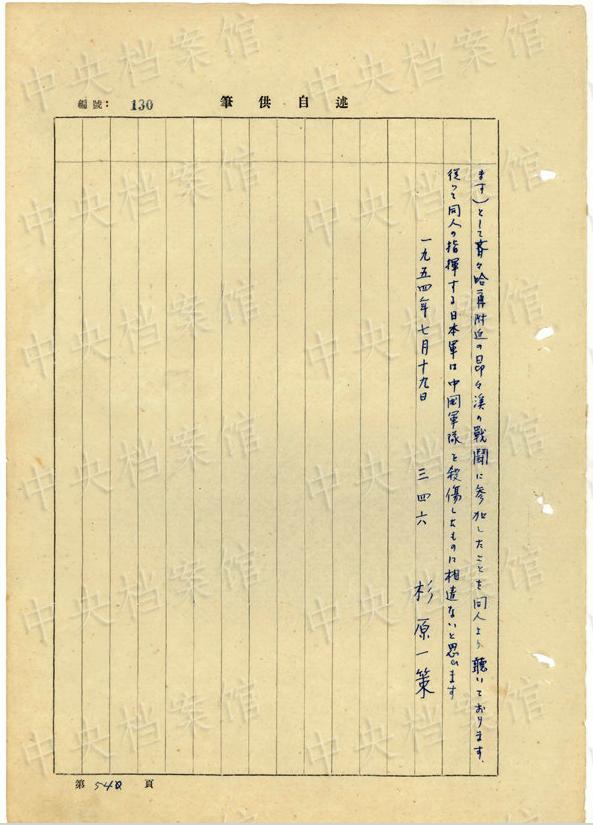 編號： 130
筆供自述
ます）として斉々哈爾附近の昂々溪の戰鬪に参加したことを同人より聽いております
従つて同人の指揮する日本軍は中国軍隊を殺傷したものに相違ないと思います
一九五四年七月十九日 三四六 杉原一策
第 540 頁
中央档案馆